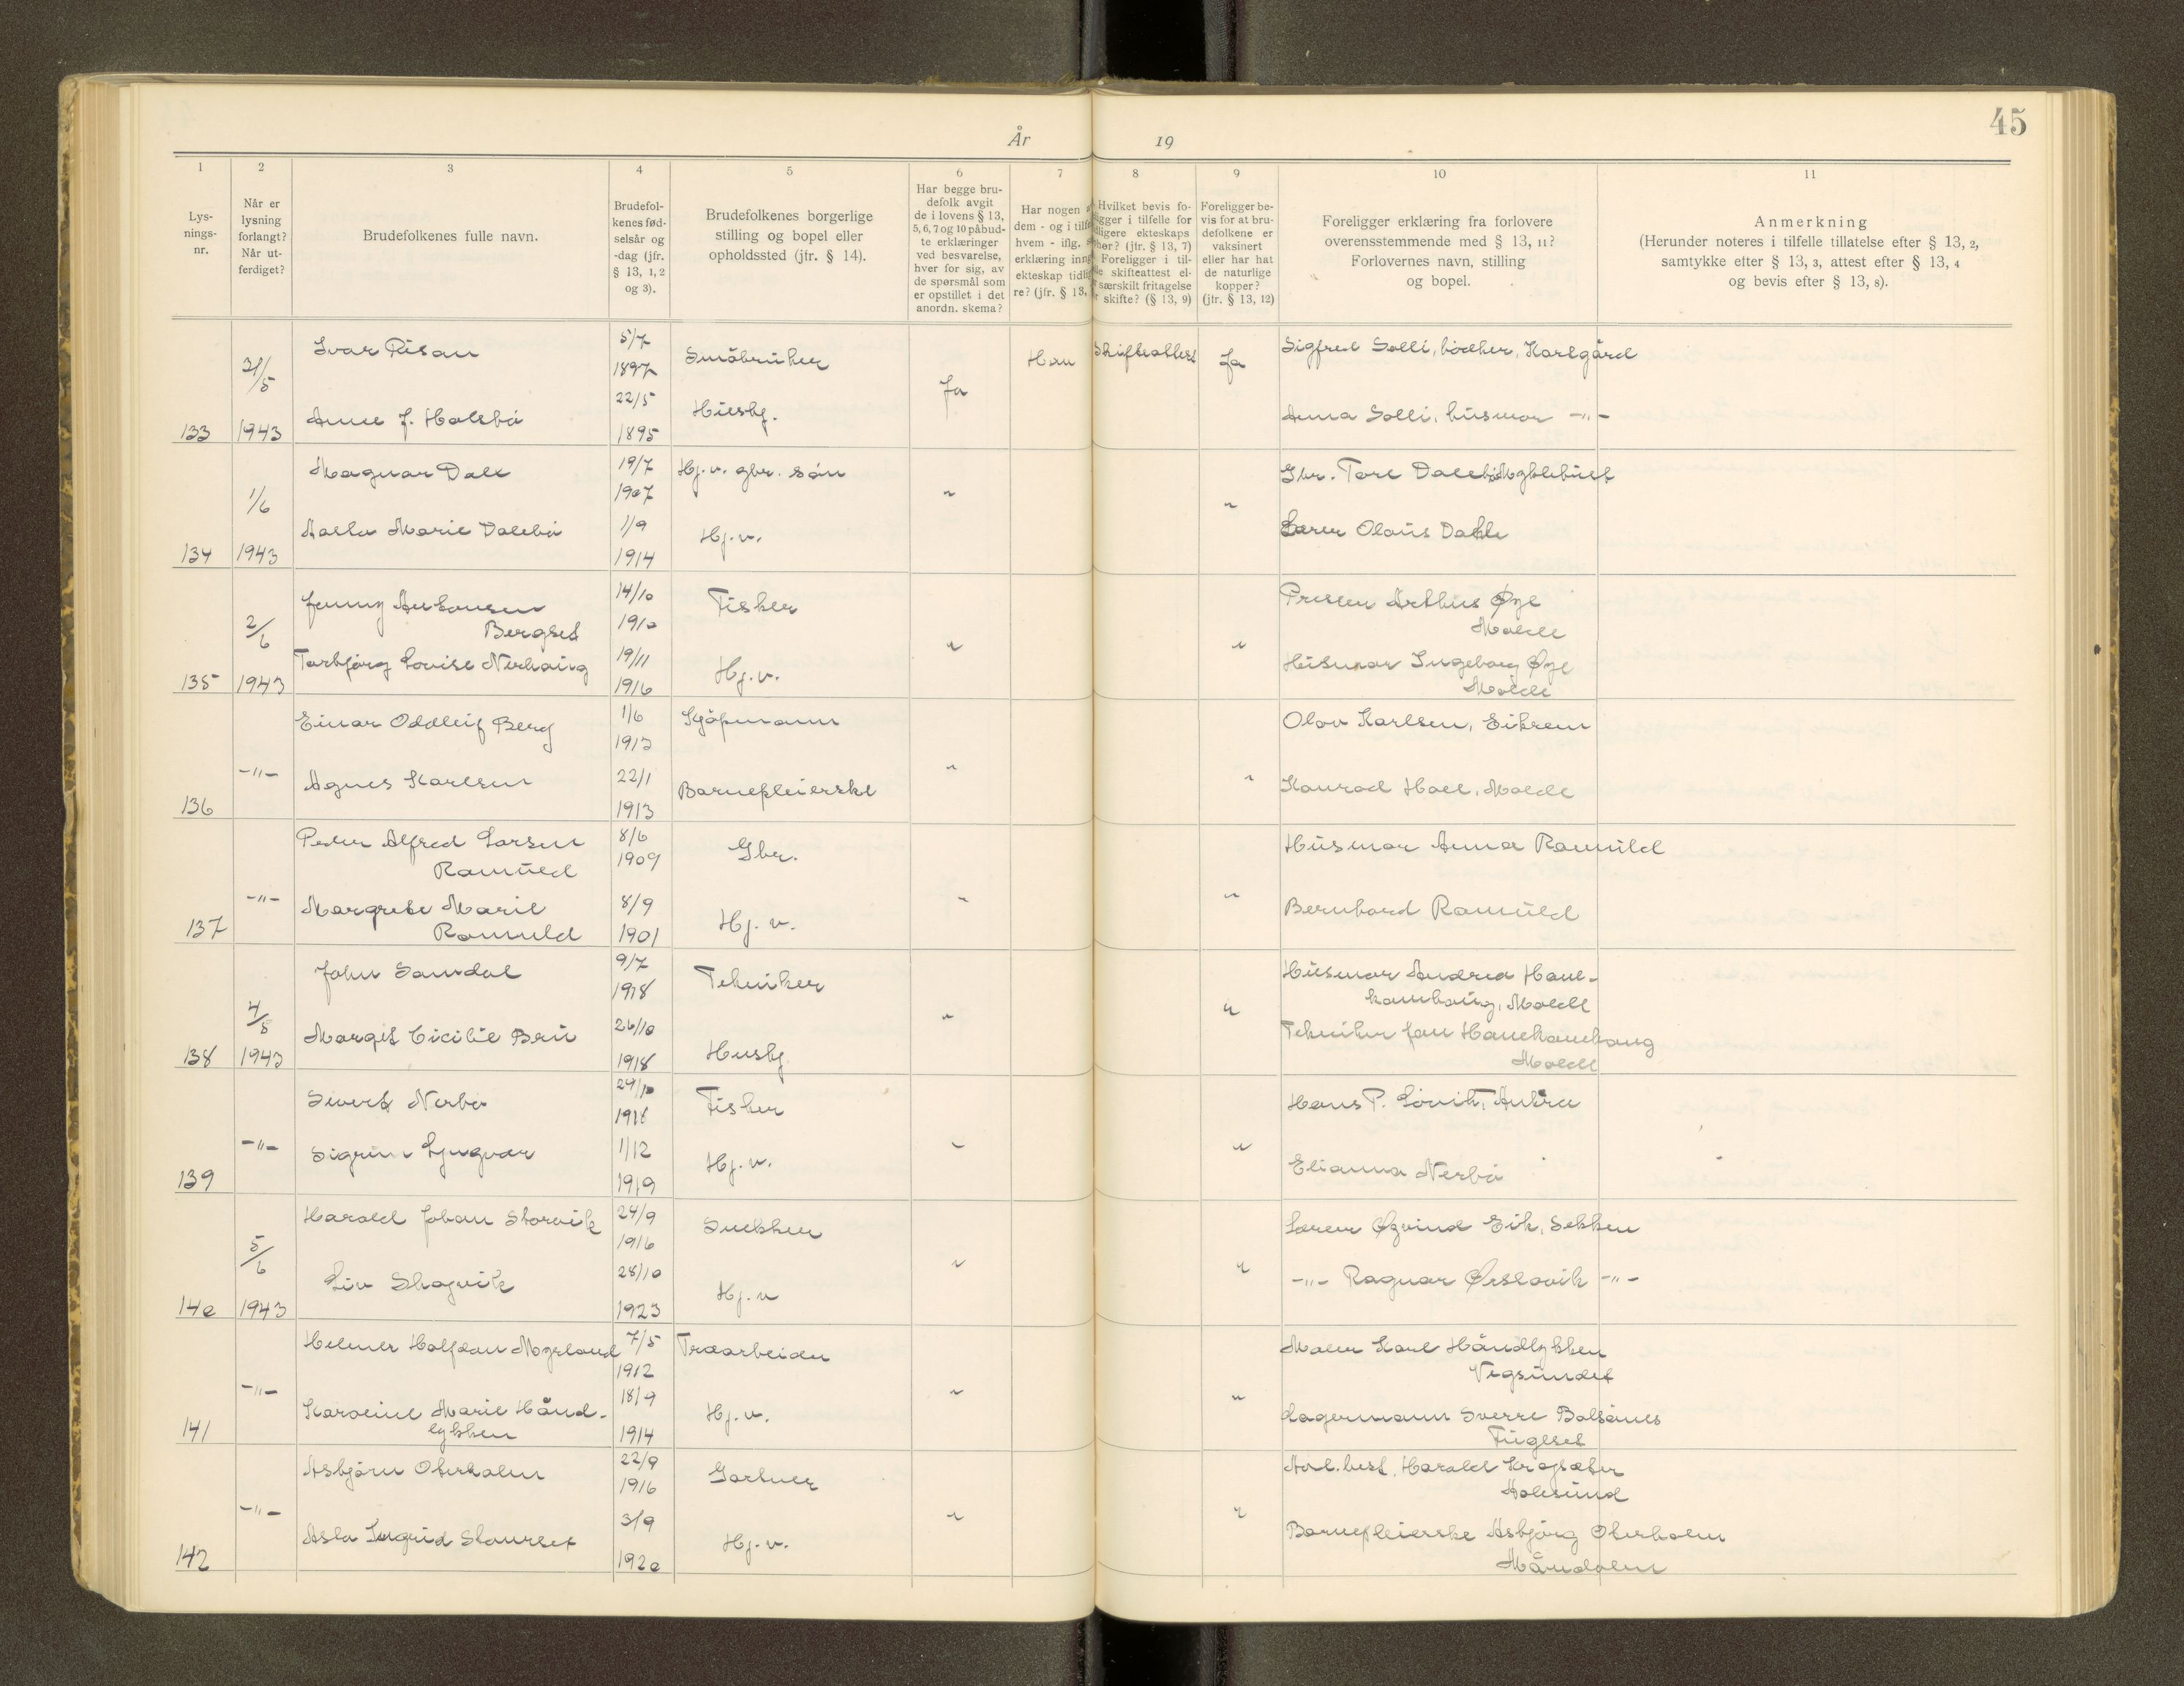 45
År 19
1
2
3
4
5
6
7
8
9
10
11
Lys-
nings-
nr.
Når er
lysning
forlangt?
Når ut-
ferdiget?
Brudefolkenes fulle navn.
Brudefol-
kenes fød-
selsår og
-dag (jfr.
§ 13, 1, 2
og 3).
Brudefolkenes borgerlige
stilling og bopel eller
opholdssted (jfr. § 14).
Har begge bru-
defolk avgit
de i lovens § 13,
5, 6, 7 og 10 påbud-
te erklæringer
ved besvarelse,
hver for sig, av
de spørsmål som
er opstillet i det
anordn. skema?
Har nogen
dem - og i tilf
hvem - iflg.
erklæring inng
ekteskap tidli
re? (jfr. § 13,
Hvilket bevis fo-
ligger i tilfelle for
dligere ekteskaps
phør? (jfr. § 13, 7)
Foreligger i til-
le skifteattest el-
særskilt fritagelse
r skifte? (§ 13, 9)
Foreligger be-
vis for at bru-
defolkene er
vaksinert
eller har hat
de naturlige
kopper?
(jfr. § 13, 12)
Foreligger erklæring fra forlovere
overensstemmende med § 13, 11?
Forlovernes navn, stilling
og bopel.
Anmerkning
(Herunder noteres i tilfelle tillatelse efter § 13, 2,
samtykke efter § 13, 3, attest efter § 13, 4
og bevis efter § 13, 8).
133
31/5
1943
Ivar Risan
5/7
1897
Småbruker
Ja
Han
Skifteattest
Ja
Sigfred Solli, bødker, Karlgård
Anne J. Halsbø
22/5
1895
Husbj.
Anna Solli, husmor -"-
134
1/6
1943
Magnar Dale
19/7
1907
Hj.v. gbr. søn
"
"
Gbr. Tore Dalebø, Myklebust
Aasla Marie Dalebø
1/9
1914
Hj.v.
Lærer Olaus Dahle
135
2/6
1943
Jenny Antonsen
Bergset
14/10
1910
Fisker
"
"
Presser Arthus Øye
Molde
Torbjørg Lovise Nerhaug
19/11
1916
Hj.v.
Husmor Ingeborg Øye
Molde
136
-"-
Einar Oddleif Berg
1/6
1913
Kjøpmann
"
"
Olav Karlsen, Eikrem
Agnes Karlsen
22/1
1913
Barnepleierske
Konrad Hoel, Molde
137
-"-
Peder Alfred Larsen
Ramuld
8/6
1909
Gbr.
"
"
Husmor Anna Ramuld
Margrete Marie
Ramuld
8/9
1901
Hj. v.
Bernhard Ramuld
138
4/5
1943
John Sandal
9/7
1918
Tekniker
"
"
Husmor Andrea Hane-
kamhaug, Molde
Margit Cicilie Bru
26/10
1918
Husbj
Tekniker Jan Hanekamhaug
Molde
139
-"-
Sivert Nerbø
24/10
1918
Fisker
"
"
Hans P. Løvik, Aukra
Sigrun Lyngvær
1/12
1919
Hj.v.
Elianna Nerbø
140
5/6
1943
Harald Johan Storvik
24/9
1916
Snekker
"
"
Lærer Øyvind Eik, Sekken
Liv Skogvik
28/10
1923
Hj.v
-"- Ragnar Ørslovik -"-
141
-"-
Helmer Halfdan Myrland
7/5
1912
Træarbeider
"
"
Maler Karl Håndlykken
Vegsundet
Karoline Marie Hånd-
lykken
18/9
1914
Hj.v.
Lagermann Sverre Bolsønes
Fuglset
142
-"-
Asbjørn Oterholm
22/9
1916
Gartner
"
"
Avd.best. Harald Krogsæter
Aalesund
Asla Ingrid Staurset
3/9
1920
Hj.v.
Barnepleierske Asbjørg Oterholm
Måndalen